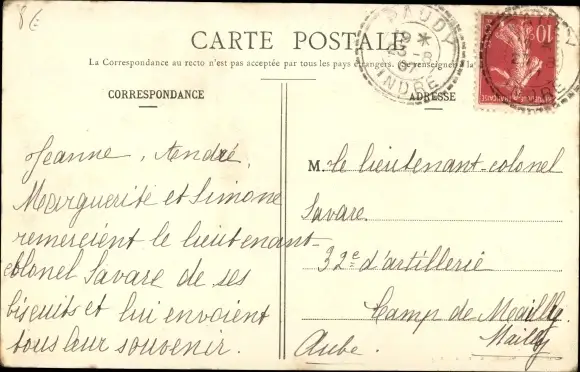 8€
CARTE POSTALE
La Correspondance au recto n'est pas acceptée par tous les pays étrangers. (Se renseigner à la
CORRESPONDANCE
ADRESSE
BAUDY
INDRE
10
Jeanne, André,
Marguerite et Simone
remercient le lieutenant-
colonel Savare de ses
biscuits et lui envoient
tous leur souvenir.
M. le lieutenant-colonel
Savare.
32e d'artillerie
Camp de Mailly.
Mailly
Aube.